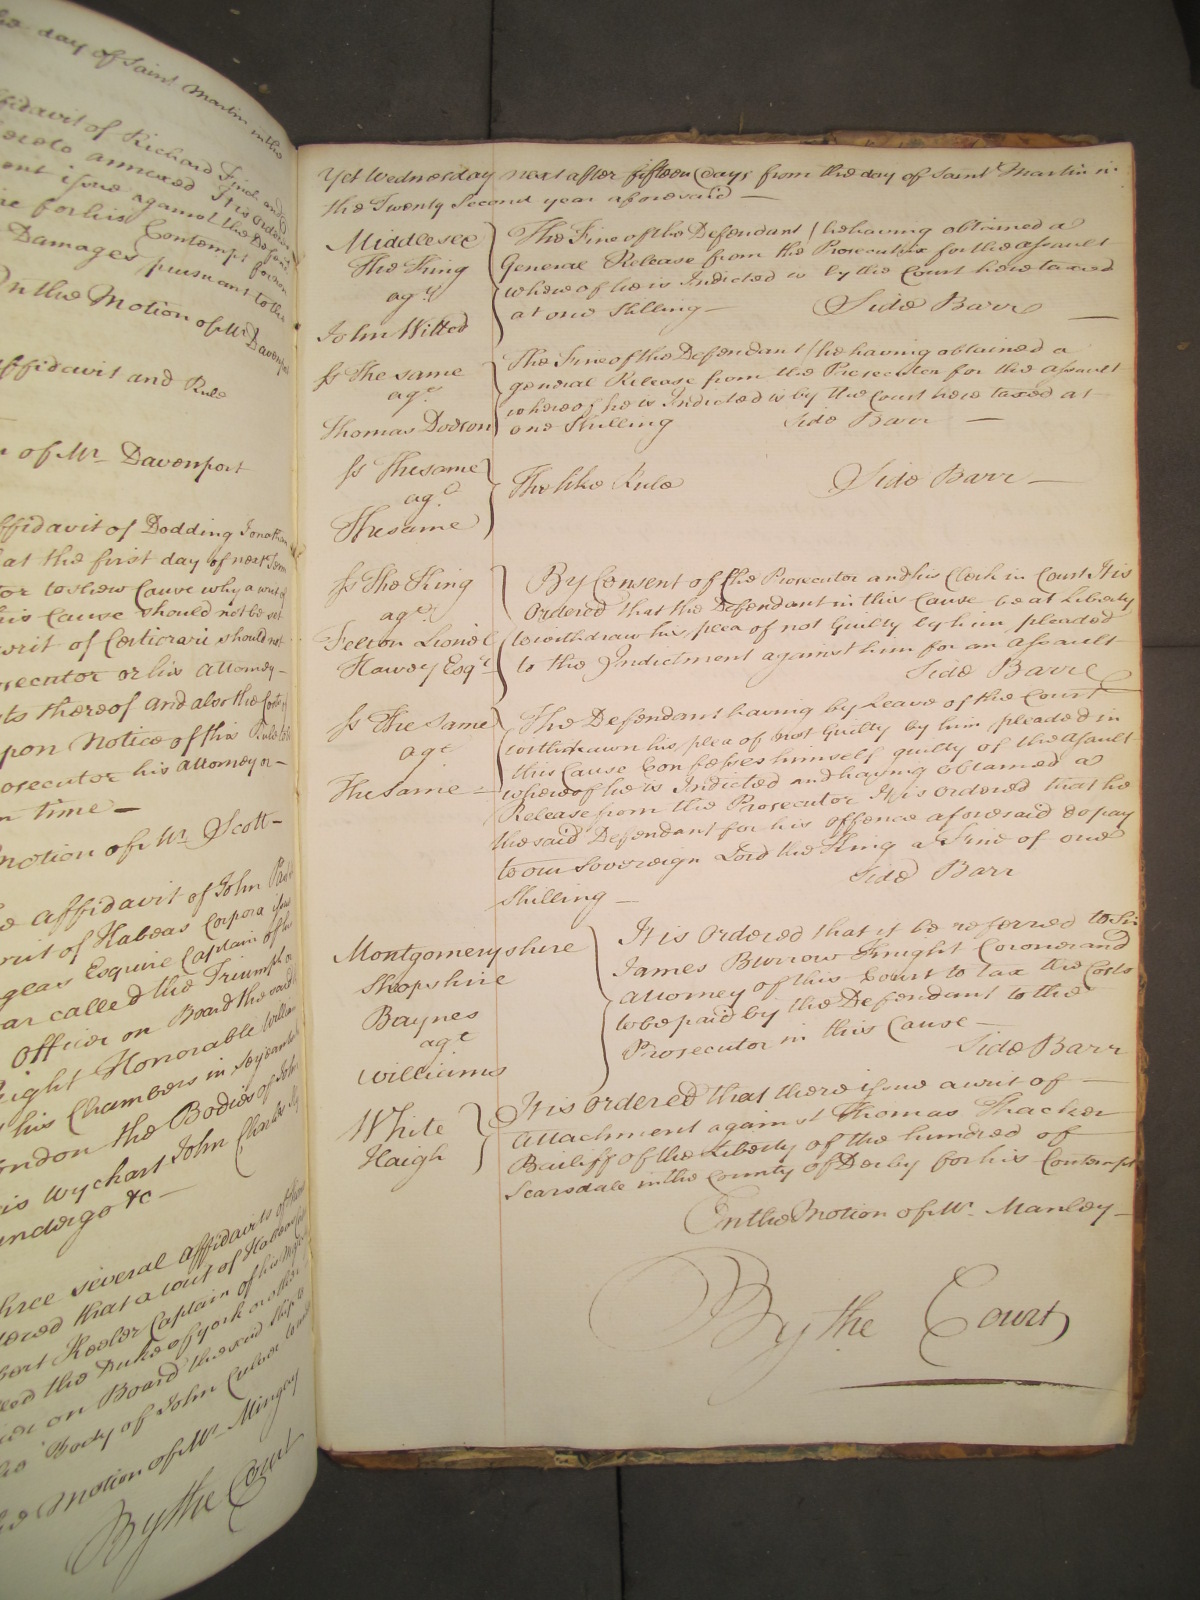 the day of Saint Martin in the
ffidavit of Richard Finch and
hereto annexed It is ordered
ment issue against the Defend
for his Contempt for non
Damages pursuant to the
On the Motion of Mr. Davenport
ffidavit and Rule
n of Mr. Davenport
ffidavit of Dodding Jonathan
at the first day of next Term
tor to shew Cause why a writ of
his Cause should not be set
writ of Certiorari should not
rosecutor or his Attorney
sts thereof and also the Costs
pon Notice of this Rule to be
rosecutor his Attorney or
n time
motion of Mr. Scott
he affidavit of John
writ of Habeas Corpora issue
glas Esquire Captain of his
ar called the Triumph or
officer on Board the said
Right Honorable William
his Chambers in Serjeants
ondon the Bodies of John
is Wychart John Charles
undergo &c
three several affidavits of
dered that a writ of Habeas
bert Keeler Captain of his Majesty
led the Duke of York or other
icer on Board the said Ship
the Body of John Culver
the Motion of Mr. Mingay
By the Court
Yet Wednesday next after fifteen Days from the day of Saint Martin in
the Twenty Second year aforesaid
Middlesex
The King
agt.
John Witted
The Fine of the Defendant /he having obtained a
General Release from the Prosecutrix for the Assault
whereof he is Indicted is by the Court here taxed
at one Shilling Side Barr
Ss The same
agt.
Thomas Dodson
The Fine of the Defendant /he having obtained a
general Release from the Prosecutor for the Assault
whereof he is Indicted is by the Court here taxed at
one Shilling Side Barr
Ss The same
agt.
The same
The like Rule Side Barr
Ss The King
agt.
Felton Lionel
Hawey Esqr.
By Consent of the Prosecutor and his Clerk in Court It is
Ordered that the Defendant in this Cause be at Liberty
to withdraw his plea of not Guilty by him pleaded
to the Indictment against him for an Assault
Side Barr
Ss The same
agt
The same
The Defendant having by Leave of the Court
withdrawn his plea of not Guilty by him pleaded in
this Cause Confesses himself guilty of the Assault
whereof he is Indicted and having obtained a
Release from the Prosecutor It is ordered that he
the said Defendant for his offence aforesaid do pay
to our Sovereign Lord the King a Fine of one
Shilling Side Barr
Montgomeryshire
Shropshire
Baynes
agt
Williams
It is Ordered that it be referred to Sir
James Burrow Knight Coroner and
Attorney of this Court to tax the Costs
to be paid by the Defendant to the
Prosecutor in this Cause
Side Barr
White
Haigh
It is Ordered that there issue a writ of
Attachment against Thomas Thacker
Bailiff of the Liberty of the hundred of
Scarsdale in the County of Derby for his Contempt
On the Motion of Mr. Manley
By the Court